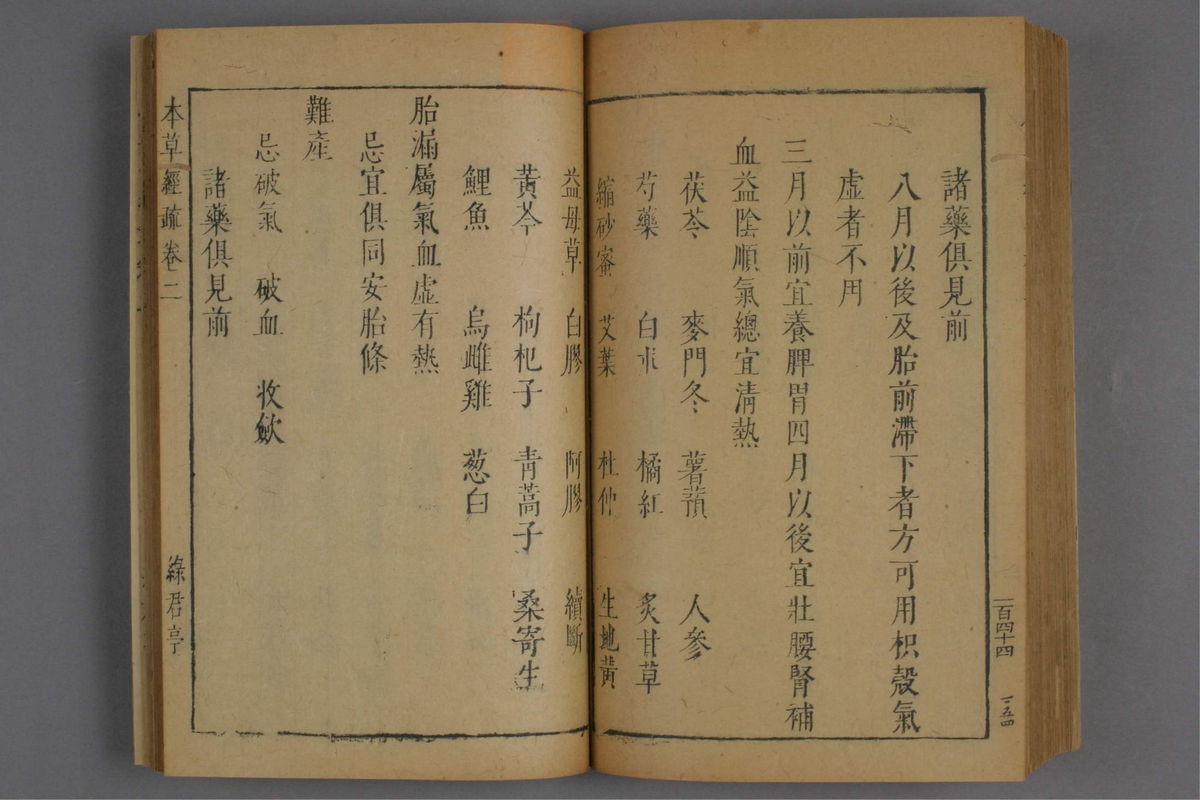 諸藥俱見前
八月以後及胎前滯下者方可用枳殼氣
虛者不用
三月以前宜養脾胃四月以後宜壯腰腎補
血益陰順氣總宜清熱
茯苓 麥門冬 薯蕷 人參
芍藥 白朮 橘紅 炙甘草
縮砂蜜 艾葉 杜仲 生地黃
益母草 白膠 阿膠 續斷
黃芩 枸杞子 青蒿子 桑寄生
鯉魚 烏雌雞 葱白
胎漏屬氣血虛有熱
忌宜俱同安胎條
難產
忌破氣 破血 收歛
諸藥俱見前
本草經疏 卷二 綠君亭
一百四十四